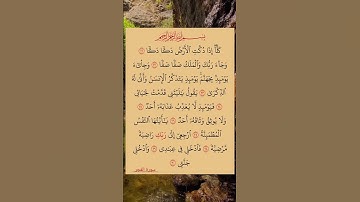 بسم الله الرحمن الرحيم
كَلَّآ إِذَا دُكَّتِ ٱلْأَرْضُ دَكًّا دَكًّا ٢١
وَجَآءَ رَبُّكَ وَٱلْمَلَكُ صَفًّا صَفًّا ٢٢ وَجِا۟ىٓءَ
يَوْمَئِذٍۭ بِجَهَنَّمَ يَوْمَئِذٍ يَتَذَكَّرُ ٱلْإِنسَٰنُ وَأَنَّىٰ لَهُ
ٱلذِّكْرَىٰ ٢٣ يَقُولُ يَٰلَيْتَنِى قَدَّمْتُ لِحَيَاتِى
٢٤ فَيَوْمَئِذٍ لَّا يُعَذِّبُ عَذَابَهُۥٓ أَحَدٌ ٢٥
وَلَا يُوثِقُ وَثَاقَهُۥٓ أَحَدٌ ٢٦ يَٰٓأَيَّتُهَا ٱلنَّفْسُ
ٱلْمُطْمَئِنَّةُ ٢٧ ٱرْجِعِىٓ إِلَىٰ رَبِّكِ رَاضِيَةً
مَّرْضِيَّةً ٢٨ فَٱدْخُلِى فِى عِبَٰدِى ٢٩ وَٱدْخُلِى
جَنَّتِى ٣٠
سورة الفجر